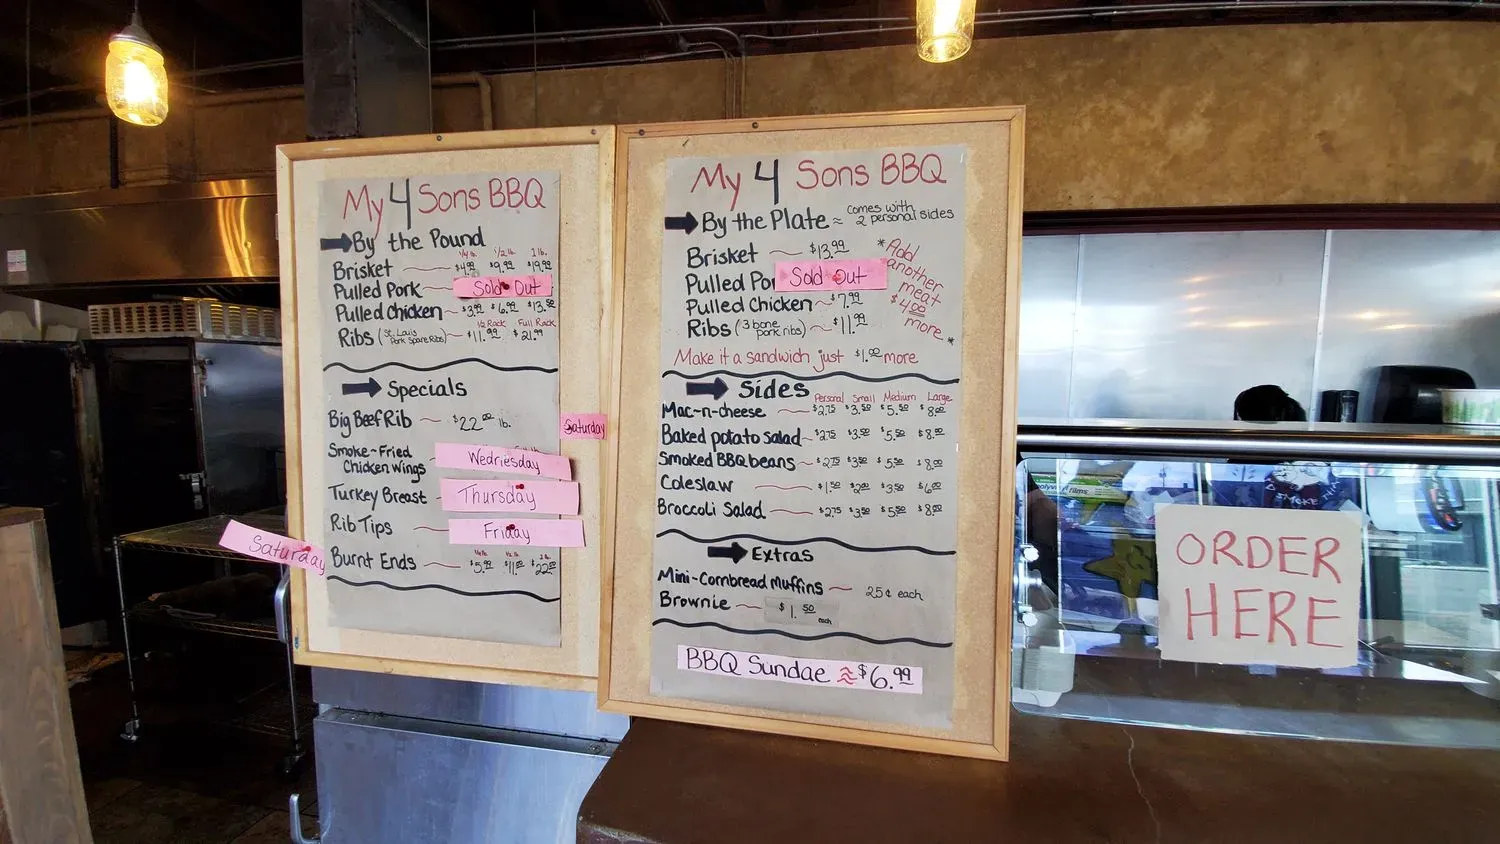 My 4 Sons BBQ
By the Pound
1/4 lb. 1/2 lb. 1 lb.
Brisket $4.99 $9.99 $19.99
Pulled Pork Sold Out
Pulled Chicken $3.99 $6.99 $13.50
1/2 Rack Full Rack
Ribs (St. Louis Pork Spare Ribs) $11.99 $21.99
Specials
Big Beef Rib ~ $22.00 lb. Saturday
Smoke-Fried
Chicken Wings Wednesday
Turkey Breast Thursday
Rib Tips Friday
Saturday
1/4 lb. 1/2 lb. 1 lb.
Burnt Ends $5.99 $11.00 $22.00
My 4 Sons BBQ
By the Plate ≈ comes with
2 personal sides
Brisket $13.99
Pulled Por Sold Out
Pulled Chicken ~ $7.99
Ribs (3 bone pork ribs) ~ $11.99
*Add
another
meat
$4.00
more*
Make it a sandwich just $1.00 more
Sides
Personal Small Medium Large
Mac-n-cheese $2.75 $3.50 $5.50 $8.00
Baked potato salad $2.75 $3.50 $5.50 $8.00
Smoked BBQ beans $2.75 $3.50 $5.50 $8.00
Coleslaw $1.50 $2.00 $3.50 $6.00
Broccoli Salad $2.75 $3.50 $5.50 $8.00
Extras
Mini-Cornbread Muffins 25¢ each
Brownie $1.50 each
BBQ Sundae $6.99
ORDER
HERE
films